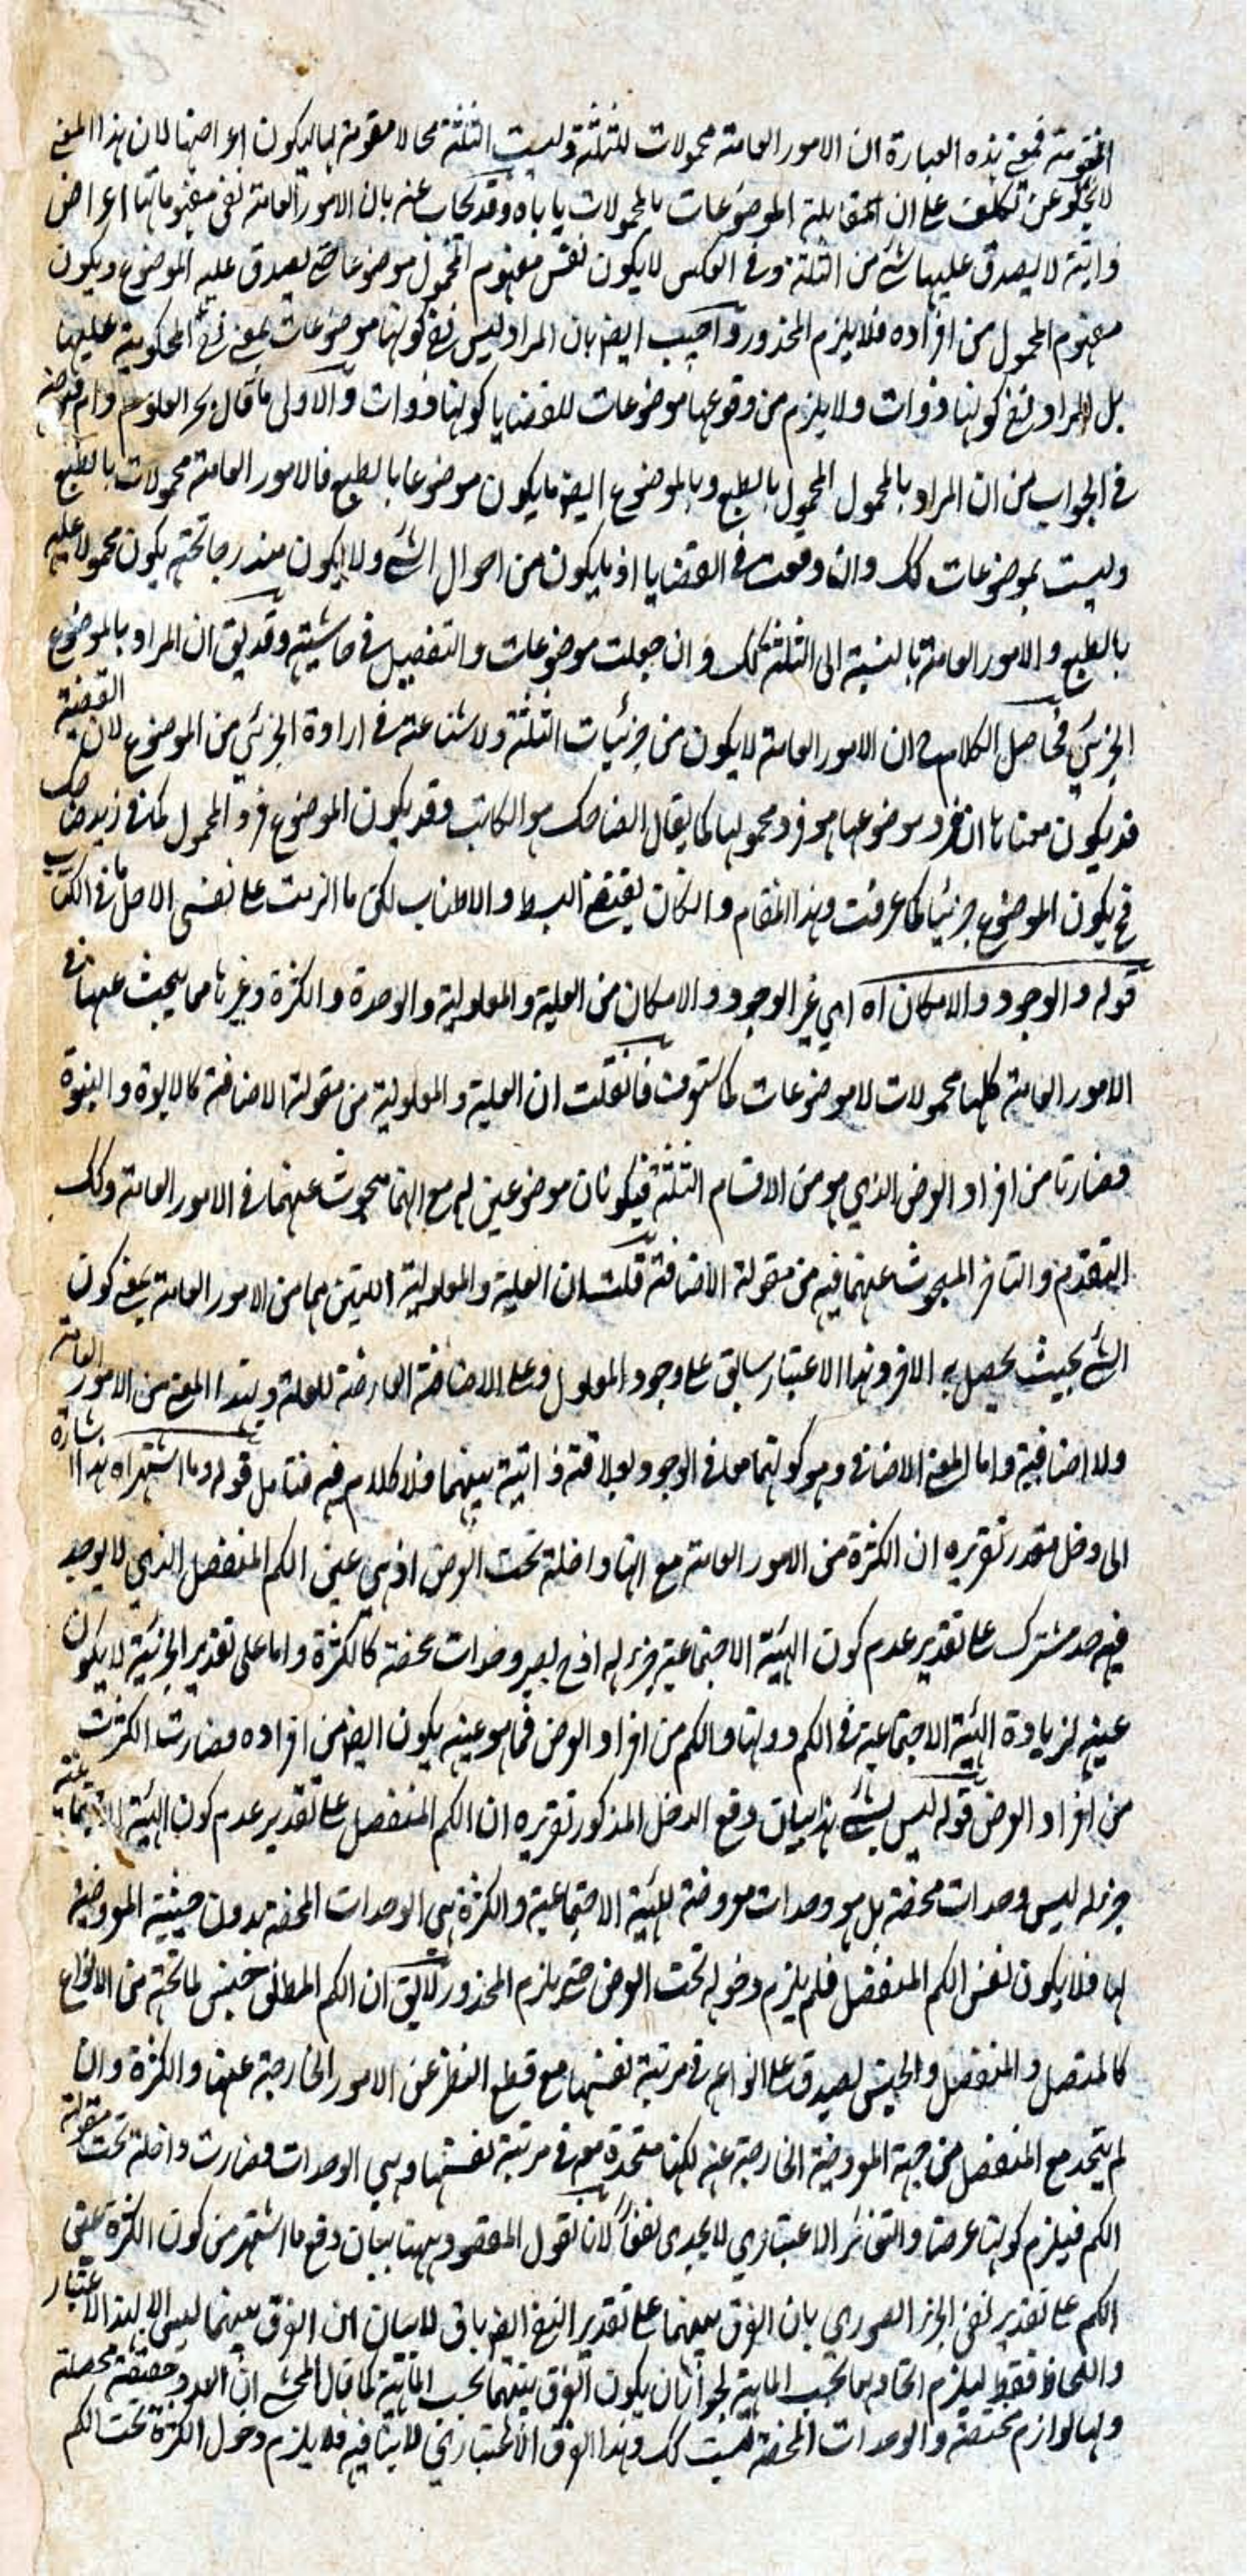 المقومة فمعنى هذه العبارة ان الامور العامة محمولات للثلثة وليست الثلثة محالا مقومة لها ليكون اعراضها لان هذا المعنى
لا يخلو عن تكلف على ان المقابلة الموضوعات بالمحمولات ياباه وقد يجاب عنه بان الامور العامة نفس مفهوماتها اعراض
ذاتية لا يصدق عليها شئ من الثلثة وفى العكس لا يكون نفس مفهوم المحمول موضوعا حتى يصدق عليه الموضوع ويكون
مفهوم المحمول من افراده فلا يلزم المحذور واجيب ايضا بان المراد ليس نفى كونها موضوعات بمعنى نفى المحكومية عليها
بل المراد نفى كونها ذوات ولا يلزم من وقوعها موضوعات للقضايا كونها ذوات والاولى ما قال بحر العلوم دام فيوضه
فى الجواب من ان المراد بالمحمول المحمول بالطبع وبالموضوع ايضا ما يكون موضوعا بالطبع فالامور العامة محمولات بالطبع
وليست بموضوعات كك وان وقعت فى القضايا اذ ما يكون من احوال الشئ ولا يكون مندرجا تحته يكون محمولا عليه
بالطبع والامور العامة بالنسبة الى الثلثة كك وان جعلت موضوعات والتفصيل فى حاشيته وقد يق ان المراد بالموضوع
الجزئى فحاصل الكلام ح ان الامور العامة لا يكون من جزئيات الثلثة ولا شناعة فى ارادة الجزئى من الموضوع لان القضية
قد يكون معناها ان فرد موضوعها هو فرد محمولها كما يقال الضاحك هو الكاتب وقد يكون الموضوع فرد المحمول كما فى زيد ضاحك
فح يكون الموضوع جزئيا كما عرفت وهذا المقام وانكان يقتضى البسط والاطناب لكن ما الزمت على نفسى الاصل ما فى الكتاب
قوله والوجود والامكان اه اى غير الوجود والامكان من العلية والمعلولية والوحدة والكثرة وغيرها مما يبحث عنها فى
الامور العامة كلها محمولات لا موضوعات كما ستعرف فانقلت ان العلية والمعلولية من مقولة الاضافة كالابوة والبنوة
فصارتا من افراد العرض الذى هو من الاقسام الثلثة فيكونان موضوعين له مع انهما مبحوث عنهما فى الامور العامة وكك
التقدم والتاخر المبحوث عنهما فيه من مقولة الاضافة قلت ان العلية والمعلولية اللتين هما من الامور العامة بمعنى كون
الشئ بحيث يحصل به الاخر وهذا الاعتبار سابق على وجود المعلول وعلى الاضافة العارضة للعلة وبهذا المعنى من الامور العامة
ولا اضافية واما المعنى الاضافى وهو كونهما معا فى الوجود بعلاقة ذاتية بينهما فلا كلام فيه فتامل قوله وما اشتهر اه هذا اشارة
الى دخل مقدر تقريره ان الكثرة من الامور العامة مع انها داخلة تحت العرض اذ هى عين الكم المنفصل الذى لا يوجد
فيه حد مشترك على تقدير عدم كون الهيئة الاجتماعية جزء له اذ ح يصير وحدات محضة كالكثرة واما على تقدير الجزئية لا يكون
عينه لزيادة الهيئة الاجتماعية فى الكم دونها والكم من افراد العرض فما هو عينه يكون ايضا من افراده فصارت الكثرت
من افراد العرض قوله ليس بشئ هذا بيان دفع الدخل المذكور تقريره ان الكم المنفصل على تقدير عدم كون الهيئة الاجتماعية
جزء له ليس وحدات محضة بل هو وحدات معروضة للهيئة الاجتماعية والكثرة هى الوحدات المحضة بدون حيثية المعروضية
لها فلا يكون نفس الكم المنفصل فلم يلزم دخوله تحت العرض حتى يلزم المحذور لا يق ان الكم المطلق جنس لما تحته من الانواع
كالمتصل والمنفصل والجنس يصدق على انواعه فى مرتبة نفسها مع قطع النظر عن الامور الخارجة عنها والكثرة وان
لم يتحد مع المنفصل من جهة المعروضية الخارجة عنه لكنها متحدة معه فى مرتبة نفسها وهى الوحدات فصارت داخلة تحت مقولة
الكم فيلزم كونها عرضا والتغاير الاعتبارى لا يجدى نفعا لانا نقول المقصود ههنا بيان دفع ما اشتهر من كون الكثرة عين
الكم على تقدير نفى الجزء الصورى بان الفرق بينهما على تقدير النفى ايضا باق لا بيان ان الفرق بينهما ليس الا بهذا الاعتبار
واللحاظ فقط ليلزم اتحادهما بحسب الماهية لجواز ان يكون الفرق بينهما بحسب الماهية كما قال المحشى ان العدد حقيقة محصلة
ولها لوازم مختصة والوحدات المحضة ليست كك وهذا الفرق الاعتبارى لا ينافيه فلا يلزم دخول الكثرة تحت الكم